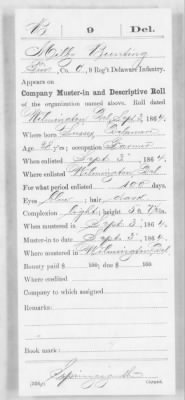 B 9 Del.
Milby Bunting
Co. , 9 Reg't Delaware Infantry.
Appears on
Company Muster-in and Descriptive Roll
of the organization named above. Roll dated
Wilmington Del Sept 3, 1864
Where born Sussex, Delaware
Age y'rs; occupation Farmer
When enlisted Sept 3, 1864
Where enlisted Wilmington Del
For what period enlisted 100 days
Eyes blue; hair dark
Complexion light; height 5 ft. in.
When mustered in Sept 3, 1864
Muster-in to date Sept 3, 1864
Where mustered in Wilmington Del
Bounty paid $ 100; due $ 100
Where credited
Company to which assigned
Remarks:
Book mark:
(356g) Copyist.